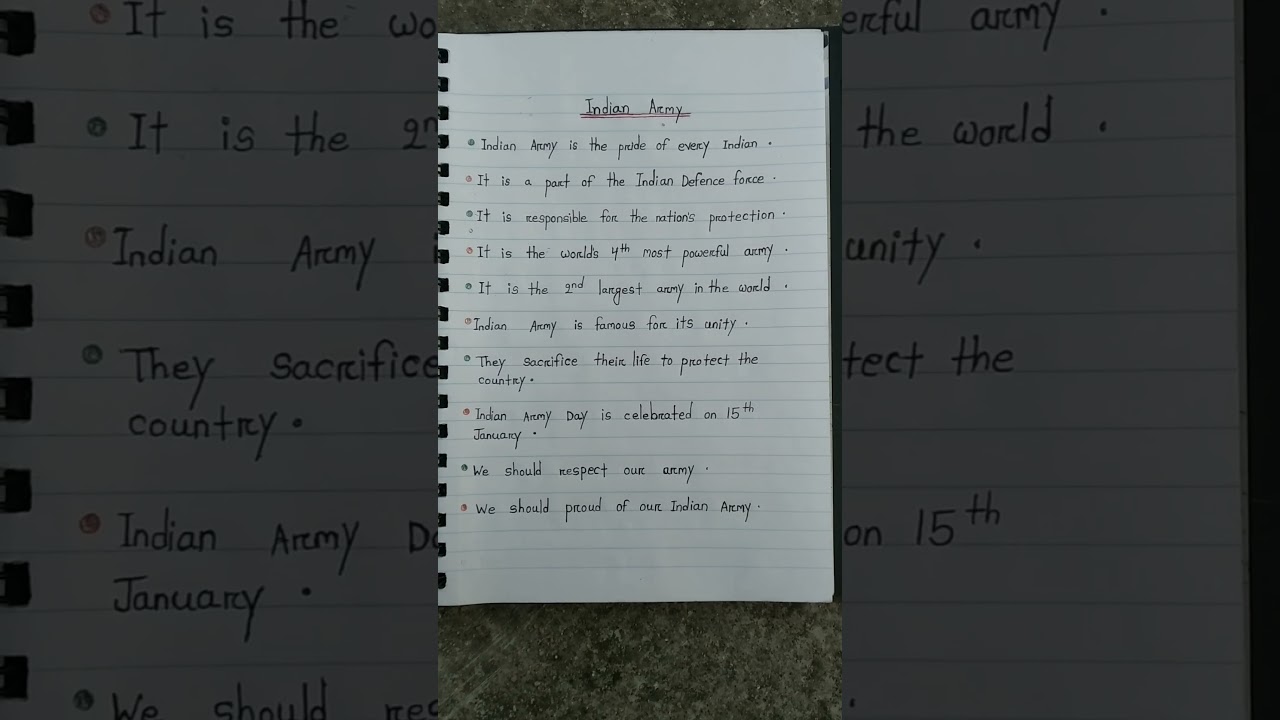 Indian Army
Indian Army is the pride of every Indian.
It is a part of the Indian Defence force.
It is responsible for the nation's protection.
It is the world's 4th most powerful army.
It is the 2nd largest army in the world.
Indian Army is famous for its unity.
They sacrifice their life to protect the
country.
Indian Army Day is celebrated on 15th
January.
We should respect our army.
We should proud of our Indian Army.